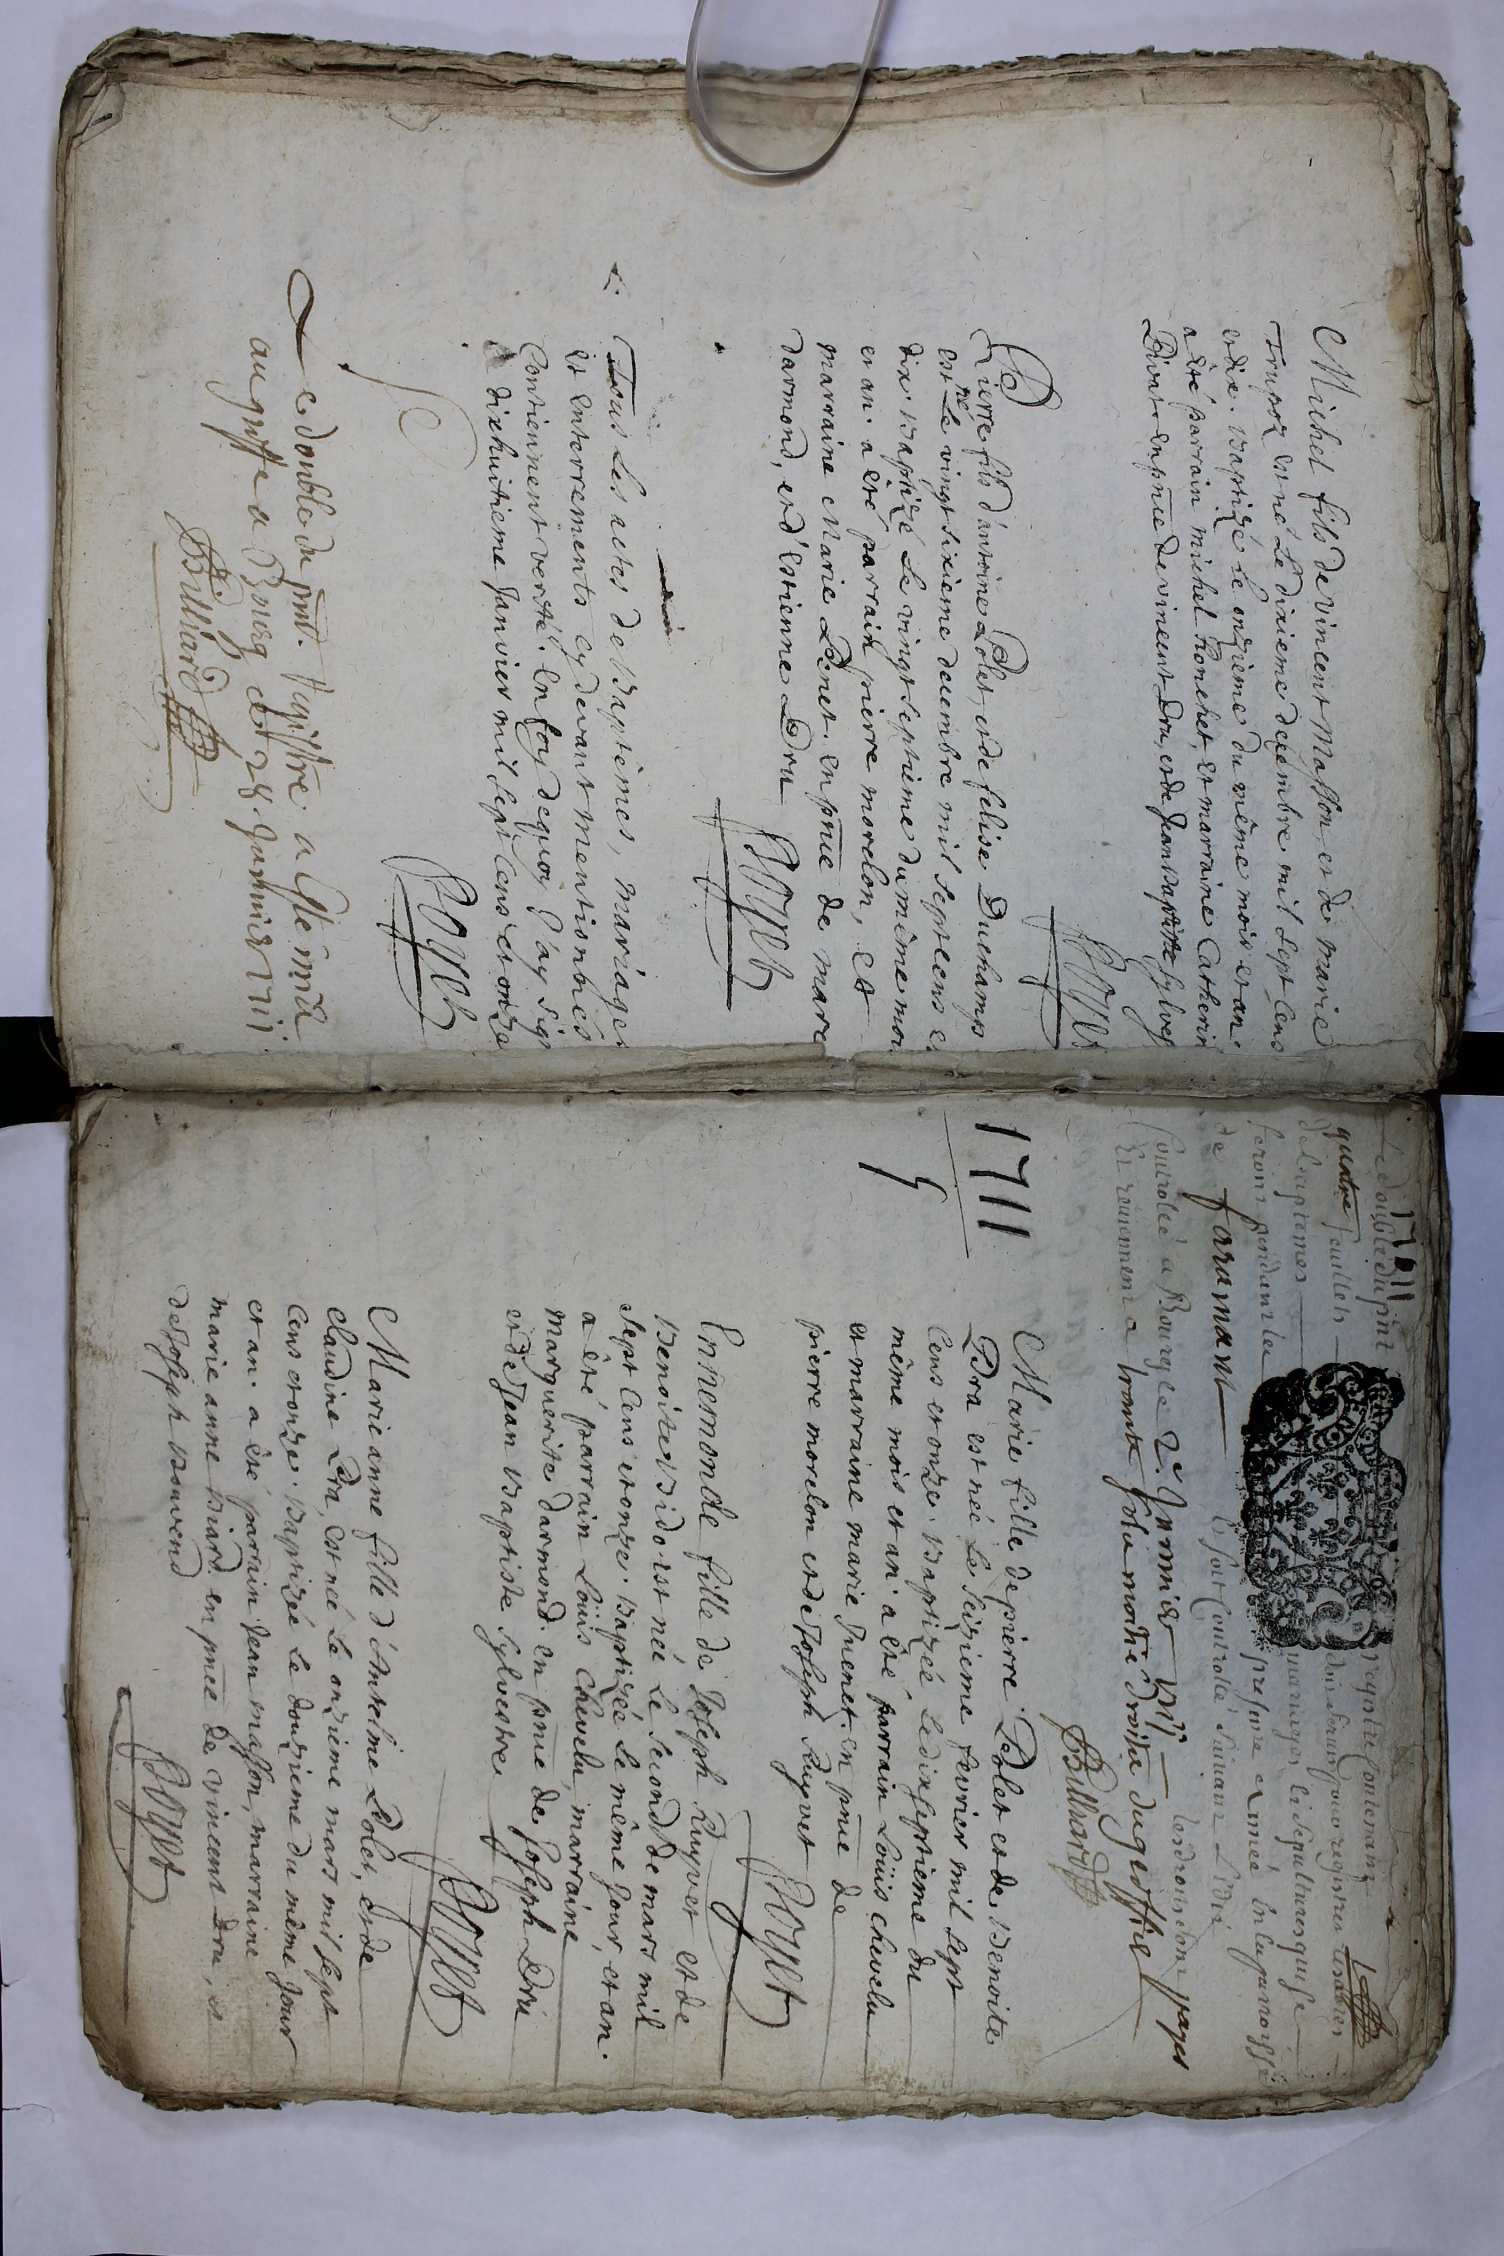 Michel fils de vincent Masson et de marie
Trupoz est né le dixieme decembre mil sept cens
et dix. baptizé le onzieme du même mois et an
a été parrain michel Ronchet, et marraine Catherin
Divat. en pnce de vincent Dru, et de Jean baptiste Sylves
Pierre fils d'antoine Polet, et de felise Duchamps
est né le vingt sixieme decembre mil sept cens et
dix. baptizé le vingt septieme du même mois
et an. a été parrain pierre morelon, et
marraine marie penet. en pnce de marc
Darmond, et d'estienne Dru
Tous les actes de baptêmes, mariages
et enterrements cy devant mentionnés
contiennent verité. en foy dequoy j'ay sig
ce dixhuitieme Janvier mil sept cens et onze
Le double du pnt. registre a esté
au greffe a Bourg ce 28. Janvier 1711
Billiard
1711
Le double du pnt registre contenant
quatre feuillets
de baptemes mariages et sepultures qui se
feront pendant la presente année en la paroisse
de faramant
controlé a Bourg le 2e. Janvier 1711
droite du greffier
Billiard
1711
Marie fille de pierre Polet et de benoite
Dra est née le seizieme fevrier mil sept
cens et onze. baptizée le dixseptieme du
même mois et an. a été parrain Loüis chevelu
et marraine marie Juenet. en pnce de
pierre morelon et de Joseph Ruyvet
Ennemonde fille de Joseph Ruyvet et de
benoite bidot est née le second de mars mil
sept cens et onze. baptizée le même jour, et an.
a été parrain Loüis Chevelu, marraine
marguerite darmond. en pnce de Joseph Dru
et de Jean baptiste Sylvestre
Marie anne fille d'Antelme Polet, et de
claudine Dra, est née le onzieme mars mil sept
cens et onze. baptizée le douzieme du même jour
et an. a été parrain Jean masson, marraine
marie anne biard. en pnce de vincent Dru, et
de Joseph bauvend